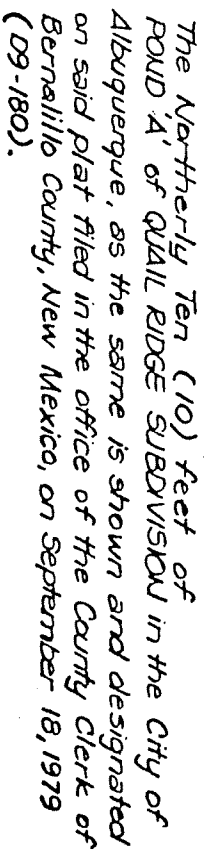 The Northerly Ten (10) feet of
POND 'A' of QUAIL RIDGE SUBDIVISION in the City of
Albuquerque, as the same is shown and designated
on said plat filed in the office of the County Clerk of
Bernalillo County, New Mexico, on September 18, 1979
(D9-180).